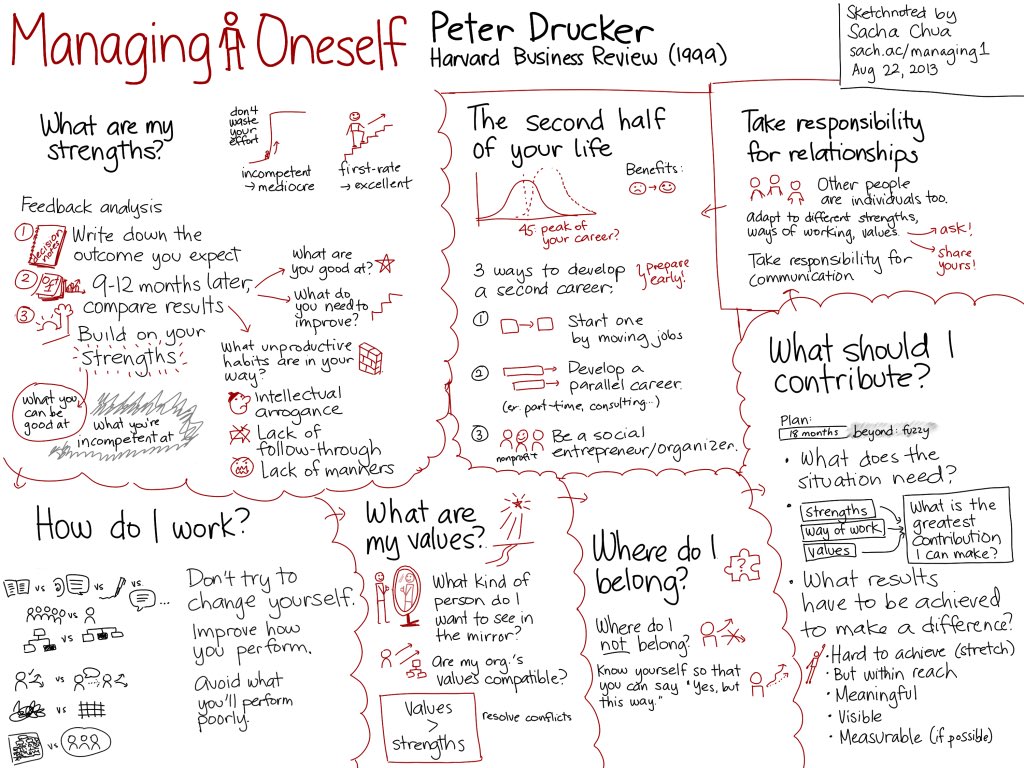 Managing Oneself
Peter Drucker
Harvard Business Review (1999)
Sketchnoted by
Sacha Chua
sach.ac/managing1
Aug 22, 2013
What are my
strengths?
don't
waste
your
effort
incompetent
→ mediocre
first-rate
→ excellent
Feedback analysis
1
decision
notes
Write down the
outcome you expect
2
9-12 months later,
compare results
3
Build on your
strengths
What are
you good at?
What do
you need to
improve?
What unproductive
habits are in your
way?
Intellectual
arrogance
Lack of
follow-through
Lack of manners
what you
can be
good at
what you're
incompetent at
How do I work?
vs vs vs...
vs
vs
vs
vs
vs
Don't try to
change yourself.
Improve how
you perform.
Avoid what
you'll perform
poorly.
What are
my values?
What kind of
person do I
want to see in
the mirror?
Are my org.'s
values compatible?
Values
>
strengths
resolve conflicts
Where do I
belong?
?
Where do I
not belong?
Know yourself so that
you can say "Yes, but
this way."
What should I
contribute?
Plan:
18 months
beyond: fuzzy
• What does the
situation need?
• strengths
way of work
values
What is the
greatest
contribution
I can make?
• What results
have to be achieved
to make a difference?
• Hard to achieve (stretch)
• But within reach
• Meaningful
• Visible
• Measurable (if possible)
Take responsibility
for relationships
Other people
are individuals too.
adapt to different strengths,
ways of working, values.
→ ask!
→ share
yours!
Take responsibility for
communication
The second half
of your life
Benefits:
45: peak of
your career?
3 ways to develop
a second career:
prepare
early!
1
Start one
by moving jobs
2
Develop a
parallel career.
(ex. part-time, consulting...)
3
nonprofit
Be a social
entrepreneur/organizer.